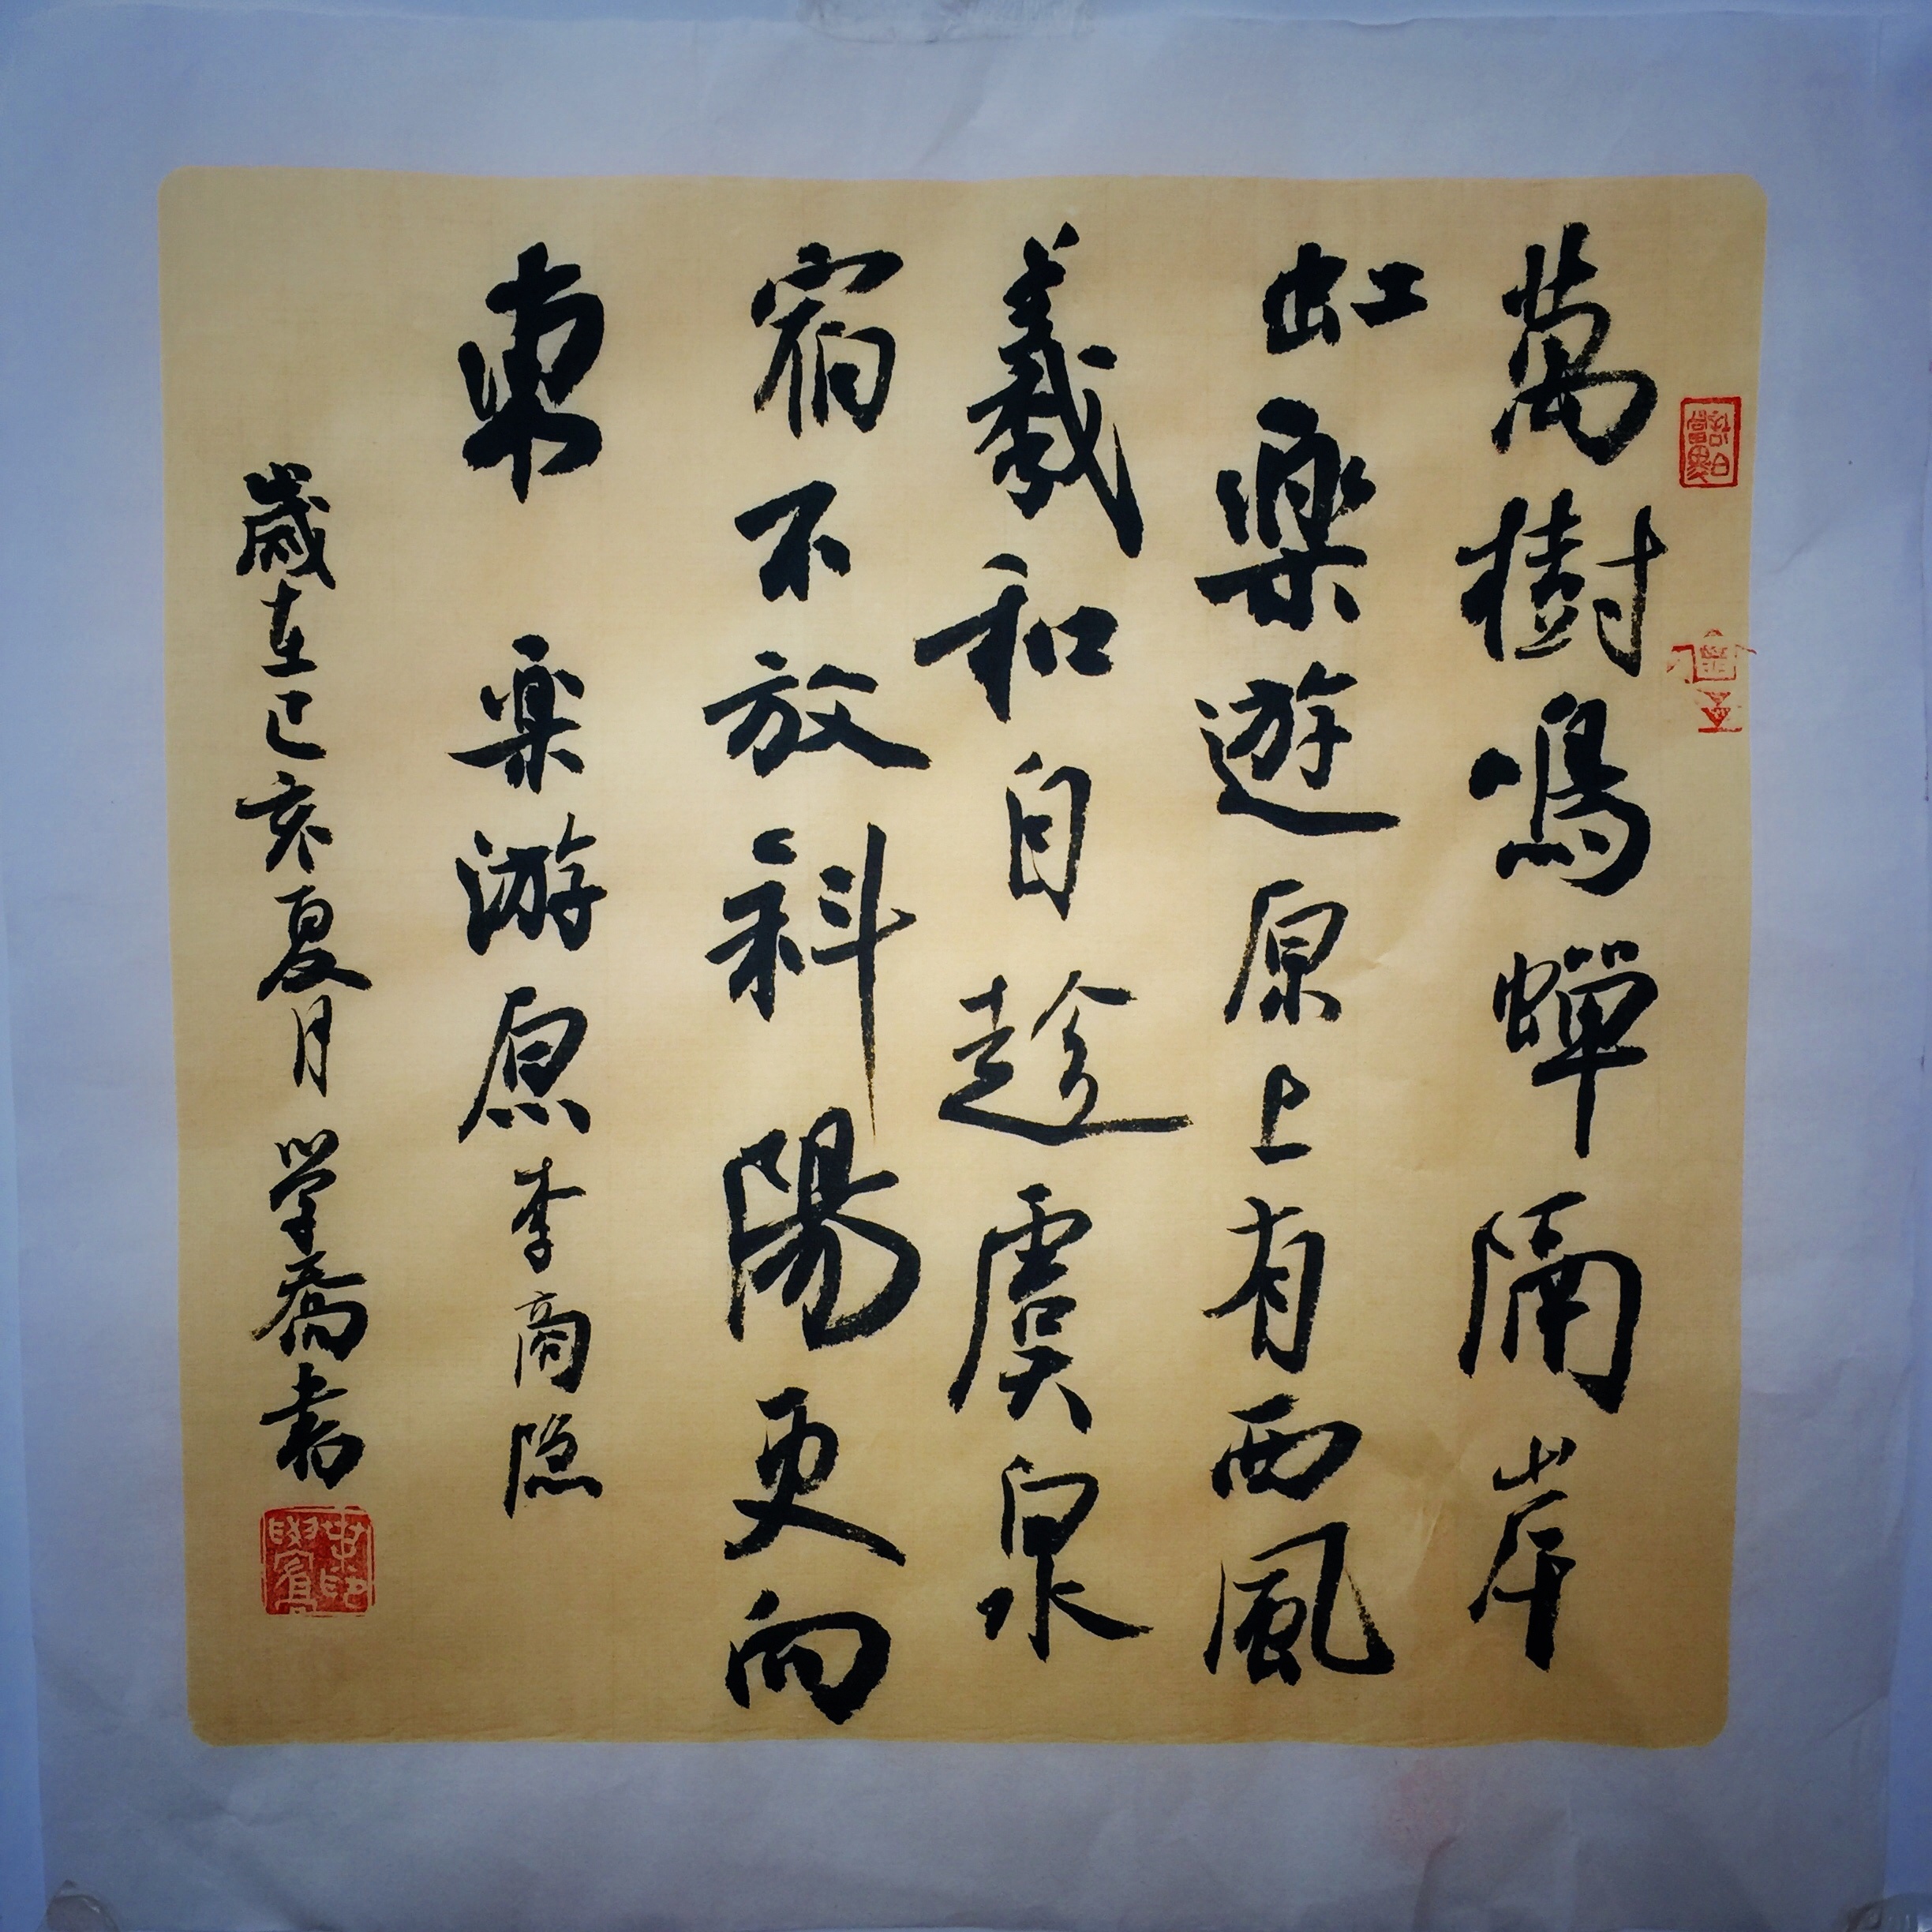 萬樹鳴蟬隔岸
虹楽遊原上有西風
羲和自趁虞泉
宿不放科陽更向
東 楽游原 李商隐
歲在己亥夏月 学喬書